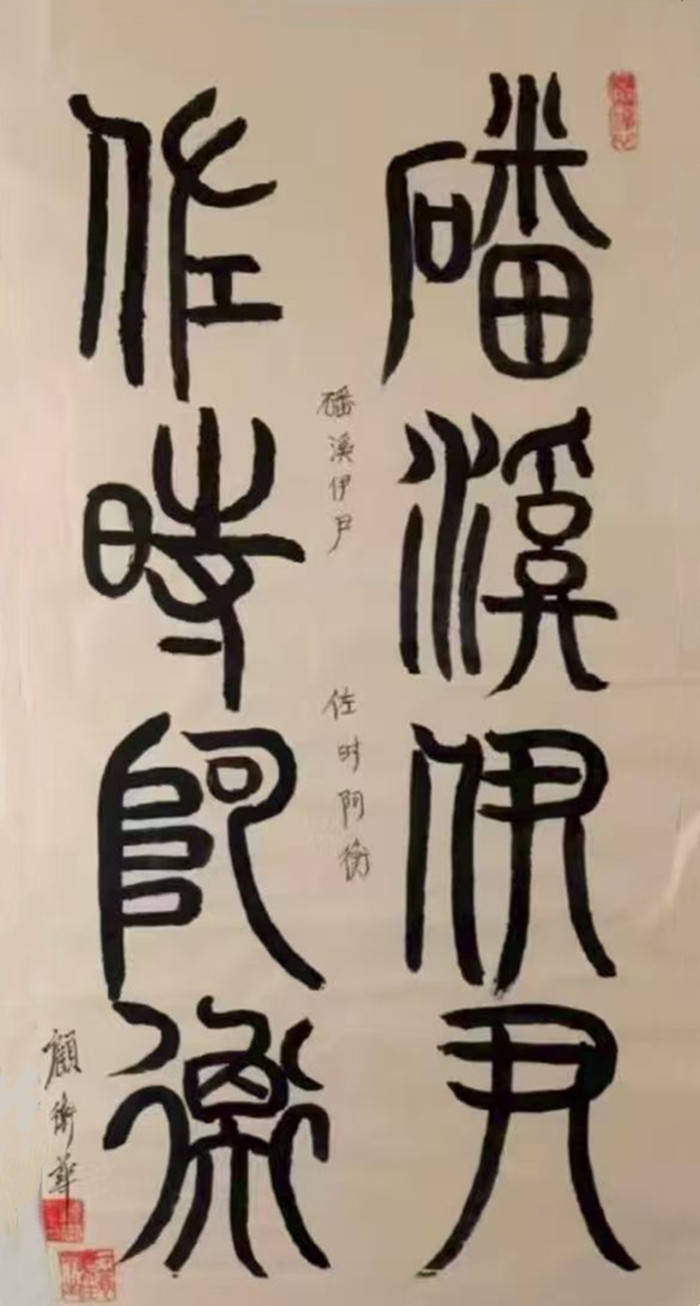 磻溪伊尹
佐时阿衡
磻溪伊尹
佐时阿衡
顧衛華